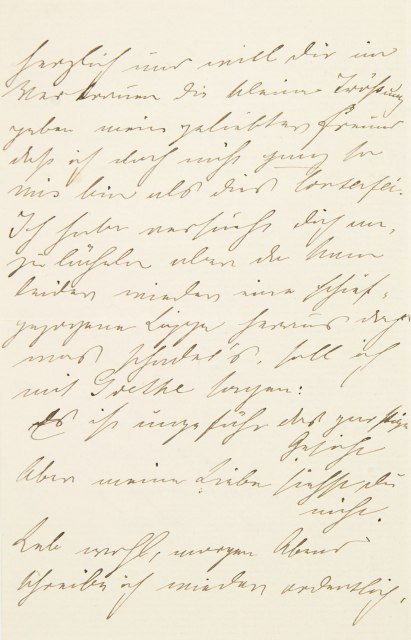 herzlich und will Dir im
Vertrauen die kleine Tröstung
geben mein geliebter Freund
daß ich doch nicht ganz so
mies bin als dies Conterfei.
Ich habe versucht Dich an-
zulächeln aber da kam
leider wieder eine schief-
gezogene Lippe heraus doch
was schadet's, soll ich
mit Goethe sagen:
Es ist ungefähr das garstige
Gesicht
Aber meine Liebe siehst du
nicht.
Leb wohl, morgen Abend
schreibe ich wieder ordentlich,